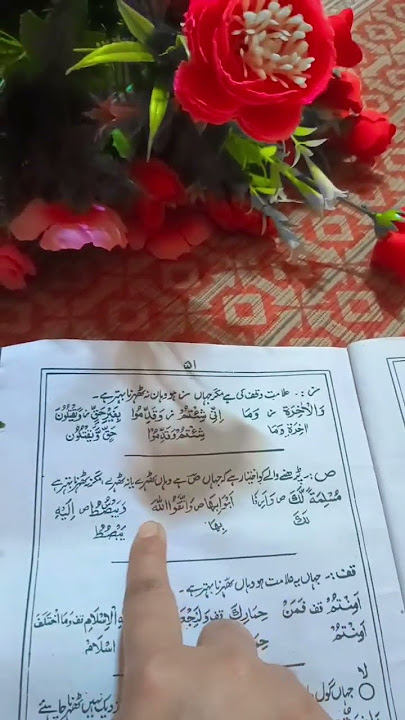 ۵۱
ز:۔ علامت وقف کی ہے مگر جہاں ز ہو وہاں نہ ٹھہرنا بہتر ہے۔
وَالْاٰخِرَةِ ز وَمَا اَنّٰی شِئْتُمْ ز وَقَدِّمُوْا بِغَيْرِ حَقٍّ ز وَّيَقْتُلُوْنَ
اٰخِرَةِ وَمَا شِئْتُمْ وَقَدِّمُوْا حَقٍّ وَّيَقْتُلُوْنَ
ص:۔ پڑھنے والے کو اختیار ہے کہ جہاں ص ہے وہاں ٹھہرے یا نہ ٹھہرے، مگر نہ ٹھہرنا بہتر ہے
مُسْلِمَةً لَّكَ ص وَاَرِنَا اَبْوَابِهَا ص وَاتَّقُوا اللّٰهَ وَيَبْصُۜطُ ص وَاِلَيْهِ
لَكَ بِهَا يَبْصُۜطُ
قف:۔ جہاں یہ علامت ہو وہاں ٹھہرنا بہتر ہے۔
اَمِنْتُمْ قف فَمَنْ حِمَارِكَ قف وَلِنَجْعَلَ الْاِسْلَامُ قف وَمَا اخْتَلَفَ
اَمِنْتُمْ اِسْلَامُ
لا
○ جہاں گول
نہیں ٹھہرنا چاہئے